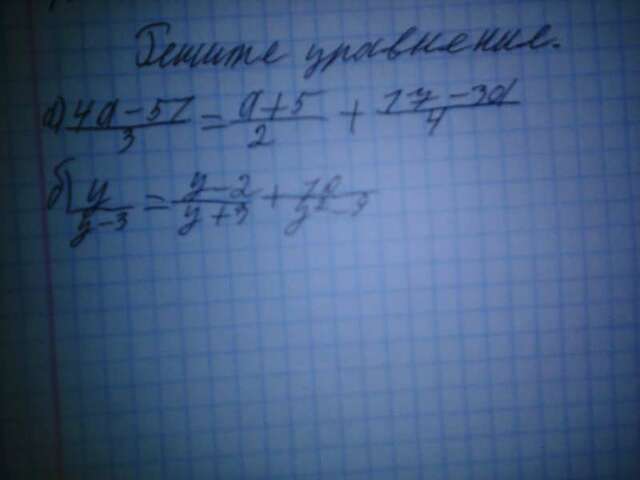 Решите уравнение.
а) 4a-51/3 = a+5/2 + 17-3a/4
б) y/y-3 = y-2/y+3 + 18/y²-9